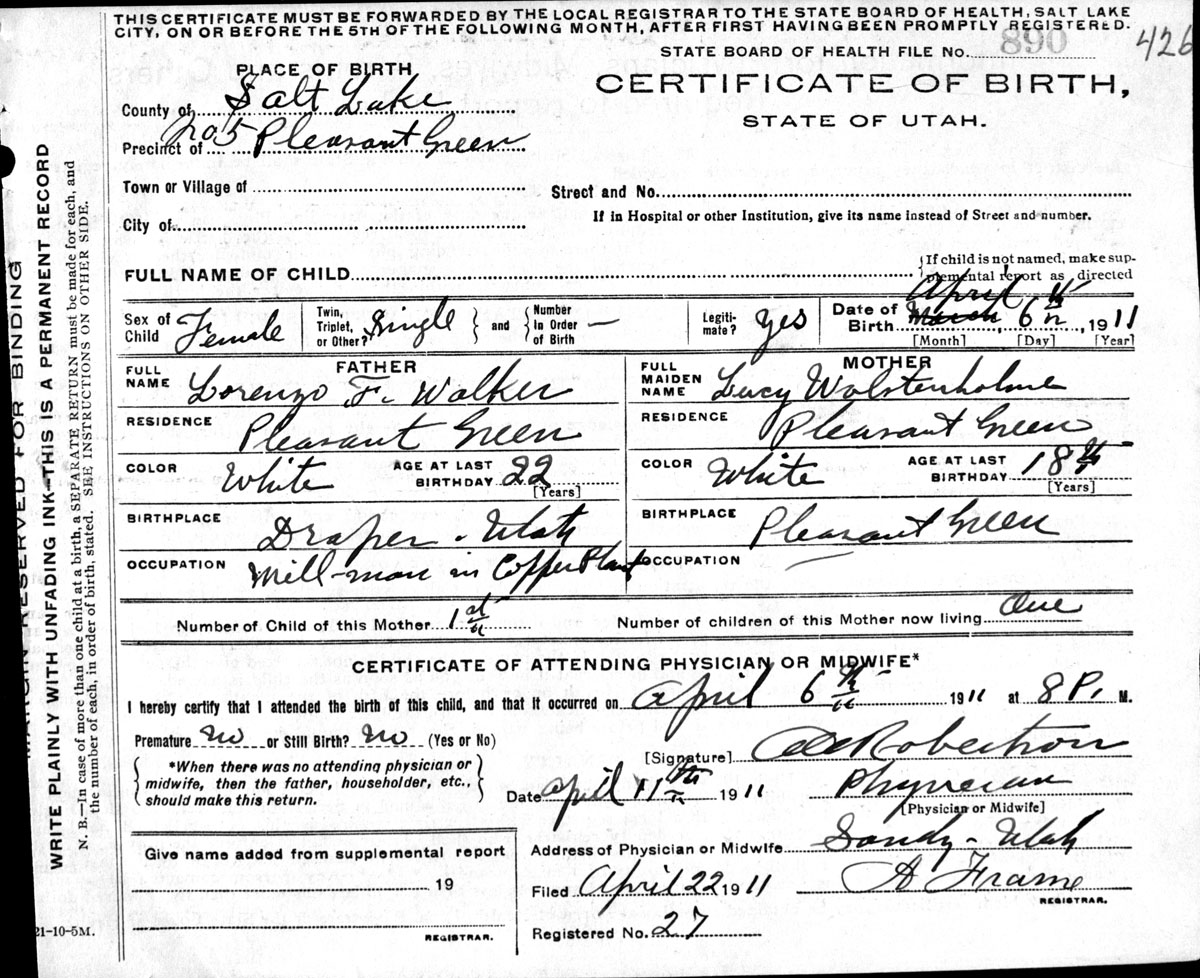 THIS CERTIFICATE MUST BE FORWARDED BY THE LOCAL REGISTRAR TO THE STATE BOARD OF HEALTH, SALT LAKE
CITY, ON OR BEFORE THE 5TH OF THE FOLLOWING MONTH, AFTER FIRST HAVING BEEN PROMPTLY REGISTERED.
STATE BOARD OF HEALTH FILE No. 890
426
PLACE OF BIRTH
CERTIFICATE OF BIRTH,
STATE OF UTAH.
County of Salt Lake
No 5
Precinct of Pleasant Green
Town or Village of
Street and No.
City of
If in Hospital or other Institution, give its name instead of Street and number.
FULL NAME OF CHILD
If child is not named, make sup-
plemental report as directed
Sex of Child Female
Twin, Triplet, or Other? Single
and
Number In Order of Birth —
Legiti-mate? Yes
Date of Birth March April 6th, 1911
[Month] [Day] [Year]
FATHER
FULL NAME Lorenzo F. Walker
RESIDENCE Pleasant Green
COLOR White
AGE AT LAST BIRTHDAY 22
[Years]
BIRTHPLACE Draper - Utah
OCCUPATION Mill-man in Copper Plant
MOTHER
FULL MAIDEN NAME Lucy Wolstenholme
RESIDENCE Pleasant Green
COLOR White
AGE AT LAST BIRTHDAY 18
[Years]
BIRTHPLACE Pleasant Green
OCCUPATION
Number of Child of this Mother 1st
Number of children of this Mother now living One
CERTIFICATE OF ATTENDING PHYSICIAN OR MIDWIFE*
I hereby certify that I attended the birth of this child, and that it occurred on April 6th 1911 at 8 P. M.
Premature No or Still Birth? No (Yes or No)
*When there was no attending physician or
midwife, then the father, householder, etc.,
should make this return.
[Signature] Robertson
Date April 11th 1911
Physician
[Physician or Midwife]
Address of Physician or Midwife Sandy - Utah
Give name added from supplemental report
19
REGISTRAR.
Filed April 22 1911
A Frame
REGISTRAR.
Registered No. 27
21-10-5M.
MARGIN RESERVED FOR BINDING
WRITE PLAINLY WITH UNFADING INK—THIS IS A PERMANENT RECORD
N. B.—In case of more than one child at a birth, a SEPARATE RETURN must be made for each, and
the number of each, in order of birth, stated. SEE INSTRUCTIONS ON OTHER SIDE.